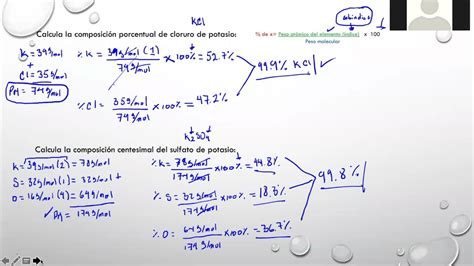 KCl
subíndice
Calcula la composición porcentual de cloruro de potasio:
% de x= Peso atómico del elemento (índice) x 100
Peso molecular
K = 39g/mol
+
Cl = 35g/mol
PM = 74g/mol
% K = 39g/mol (1) / 74g/mol × 100% = 52.7%
% Cl = 35g/mol / 74g/mol × 100% = 47.2%
99.9% KCl ✓
K2SO4
Calcula la composición centesimal del sulfato de potasio:
K = 39g/mol (2) = 78g/mol
S = 32g/mol (1) = 32g/mol +
O = 16g/mol (4) = 64g/mol
PM = 174g/mol
% K = 78g/mol / 174g/mol × 100% = 44.8%
% S = 32g/mol / 174g/mol × 100% = 18.3%
% O = 64g/mol / 174g/mol × 100% = 36.7%
99.8%